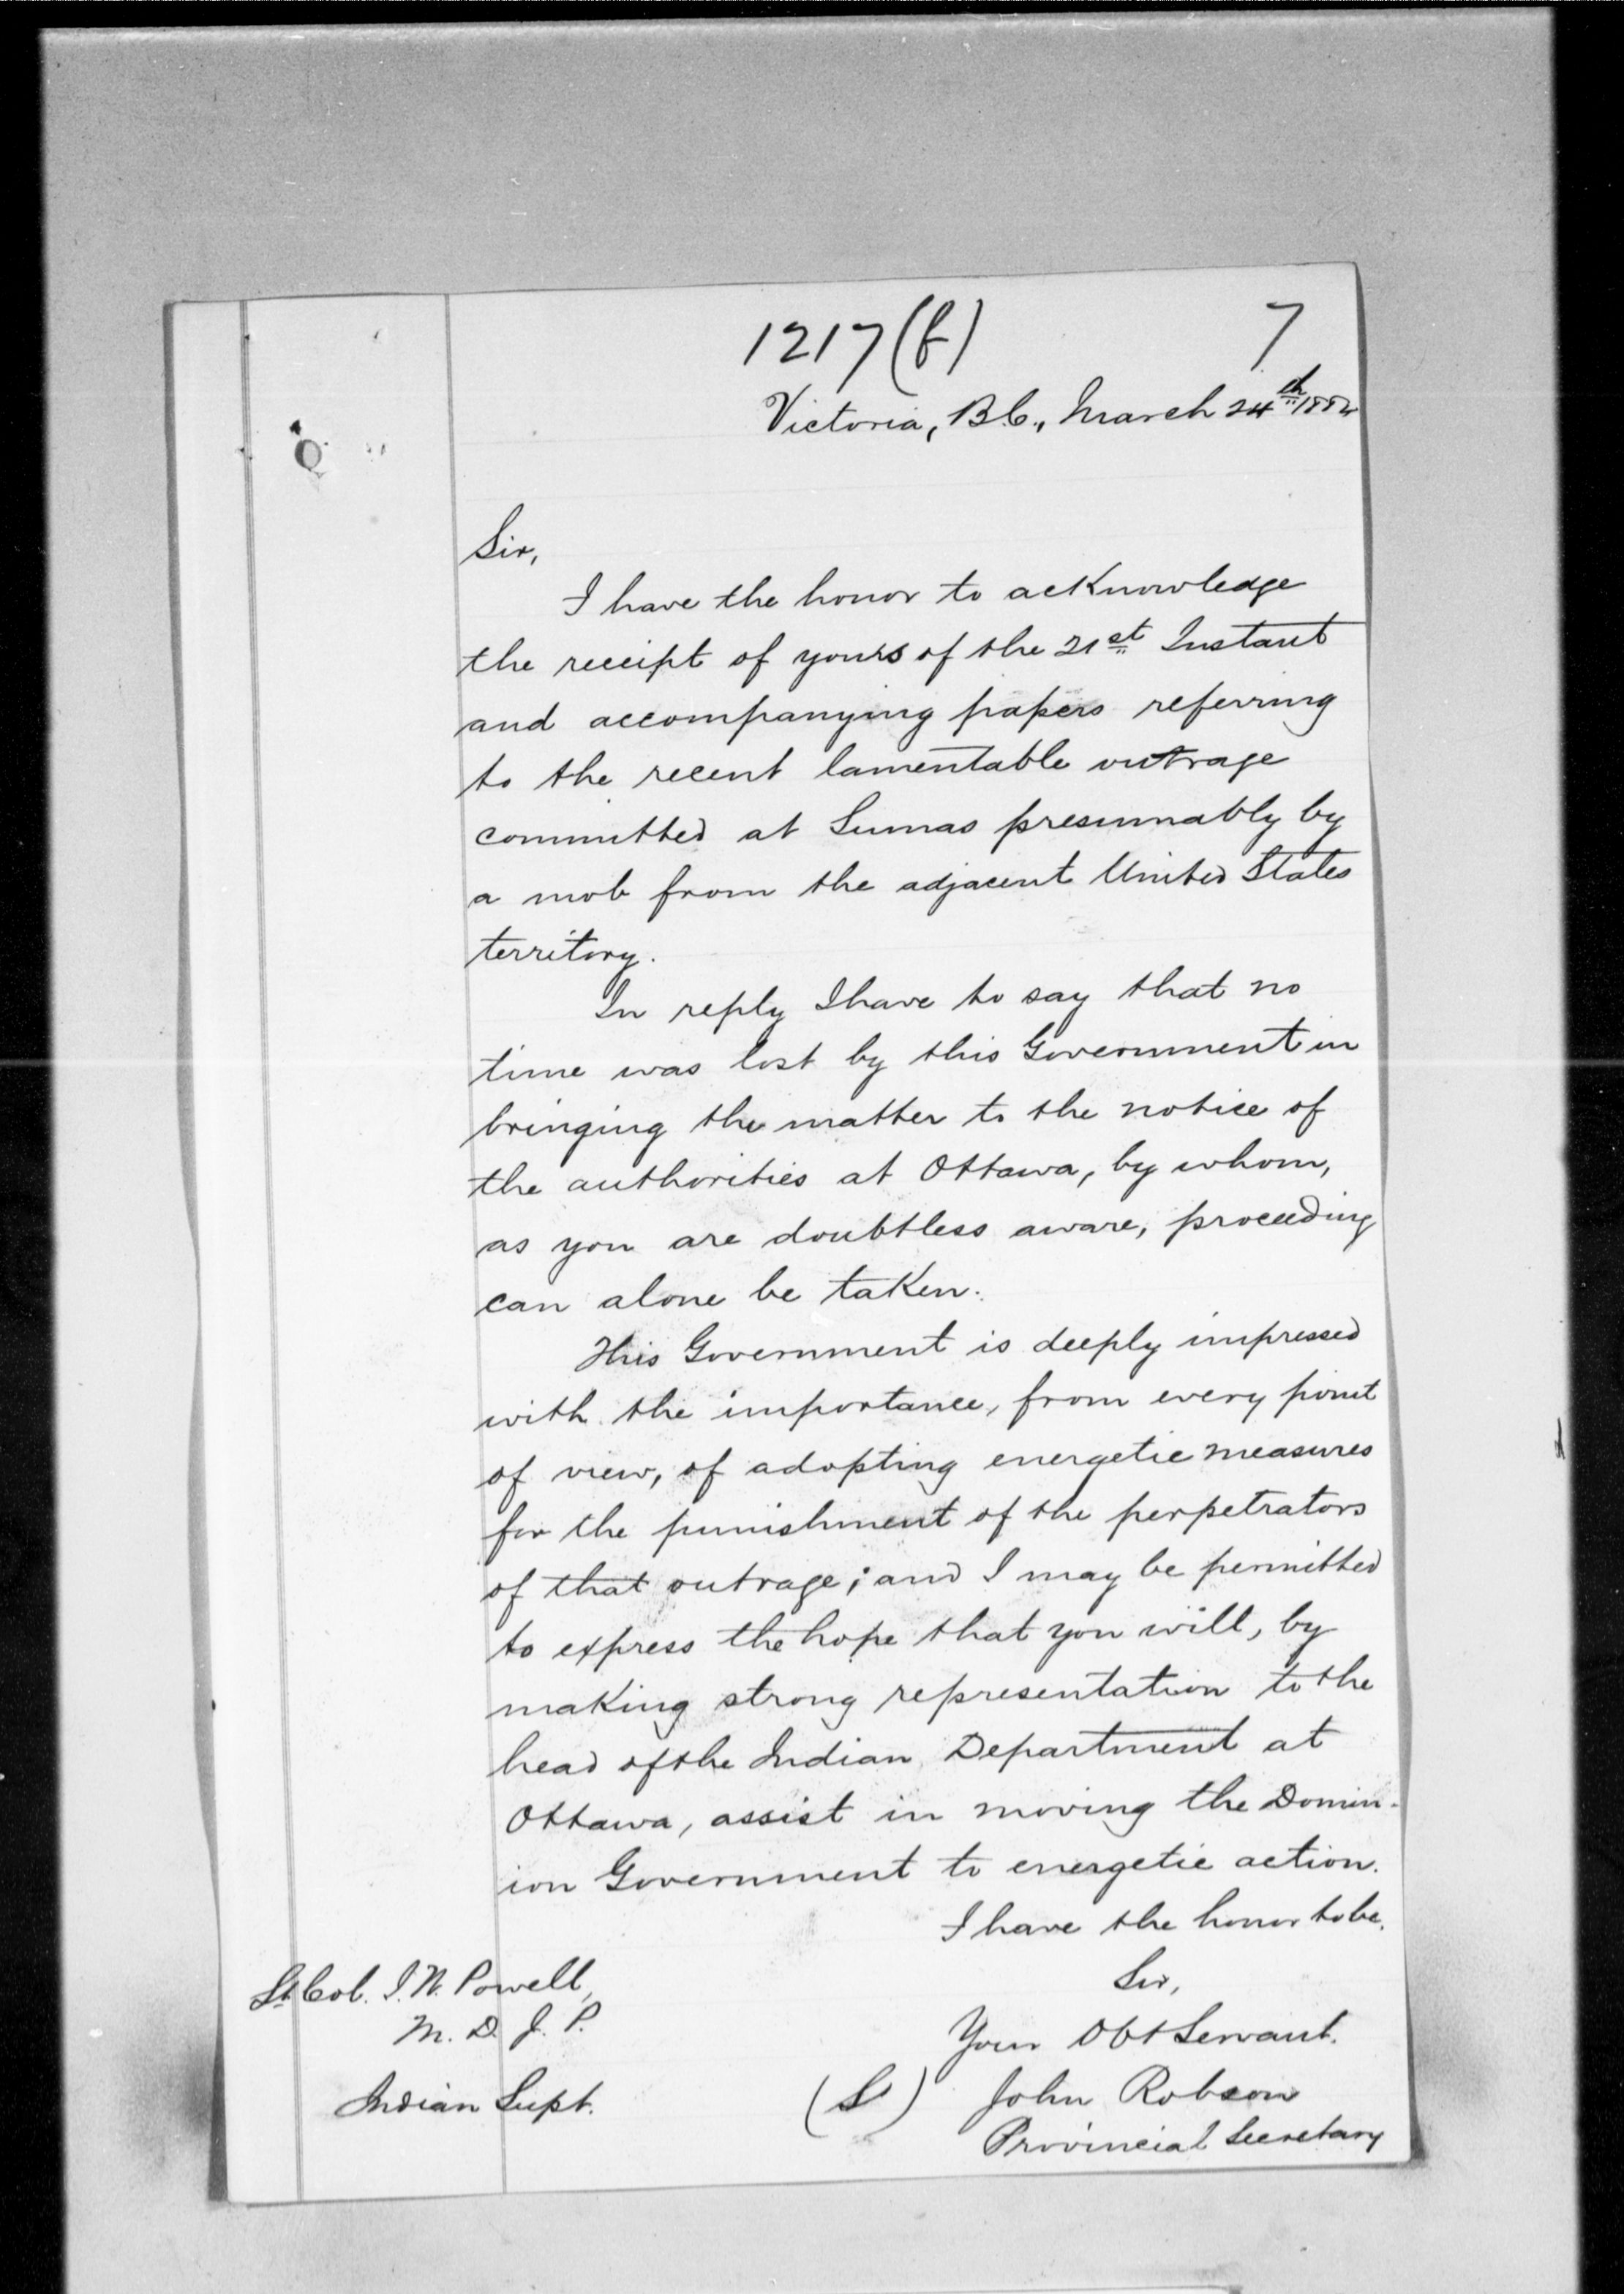 1217(f)
7
Victoria, B.C., March 24th 1884
Sir,
I have the honor to acKnowledge
the receipt of yours of the 21st Instant
and accompanying papers referring
to the recent lamentable outrage
committed at Sumas presumably by
a mob from the adjacent United States
territory.
In reply I have to say that no
time was lost by this Government in
bringing the matter to the notice of
the authorities at Ottawa, by whom,
as you are doubtless aware, proceeding
can alone be taKen.
This Government is deeply impressed
with the importance, from every point
of view, of adopting energetic measures
for the punishment of the perpetrators
of that outrage; and I may be permitted
to express the hope that you will, by
maKing strong representation to the
head of the Indian Department at
Ottawa, assist in moving the Domin-
ion Government to energetic action.
I have the honor to be,
Sir,
Your Obt Servant.
(Sd) John Robson
Provincial Secretary
Lt Col. I. W. Powell,
M. D. J. P.
Indian Supt.